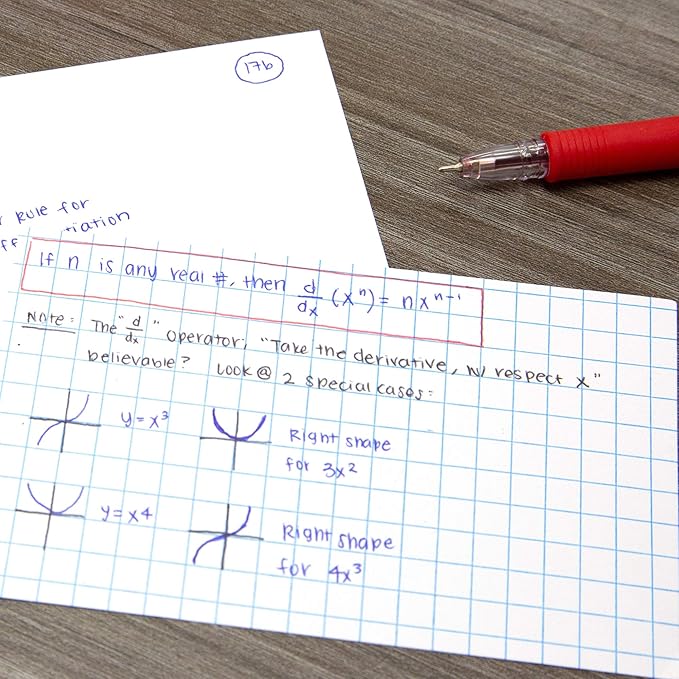 17b
Rule for
If n is any real #, then d/dx (xⁿ) = nxⁿ⁻¹
Note: The "d/dx" operator; "Take the derivative, w/ respect x"
believable? Look @ 2 special cases:
y=x³
Right shape
for 3x²
y=x4
Right shape
for 4x³